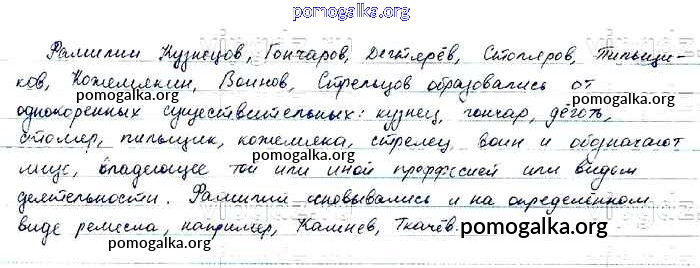 pomogalka.org
Фамилии Кузнецов, Гончаров, Дегтярёв, Столяров, Пильщи-
ков, Кожемякин, Воинов, Стрельцов образовались от
pomogalka.org pomogalka.org
однокоренных существительных: кузнец, гончар, дёготь,
pomogalka.org
столяр, пильщик, кожемяка, стрелец, воин и обозначают
pomogalka.org
лицо, владеющее той или иной профессией или видом
pomogalka.org
деятельности. Фамилии основывались и на определённом
виде ремесла, например, Камнев, Ткачёв.
pomogalka.org pomogalka.org